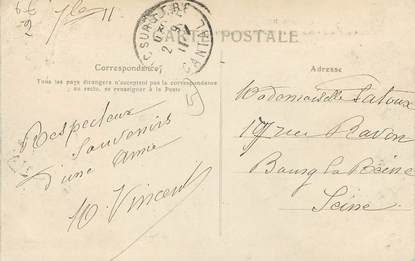 CARTE POSTALE
Correspondance
Tous les pays étrangers n'acceptent pas la correspondance
au recto, se renseigner à la Poste
Adresse
CANTAL
Respectueux
souvenirs
d'une amie
Vincent
Mademoiselle Latoux
rue Ravon
Bourg la Reine
Seine